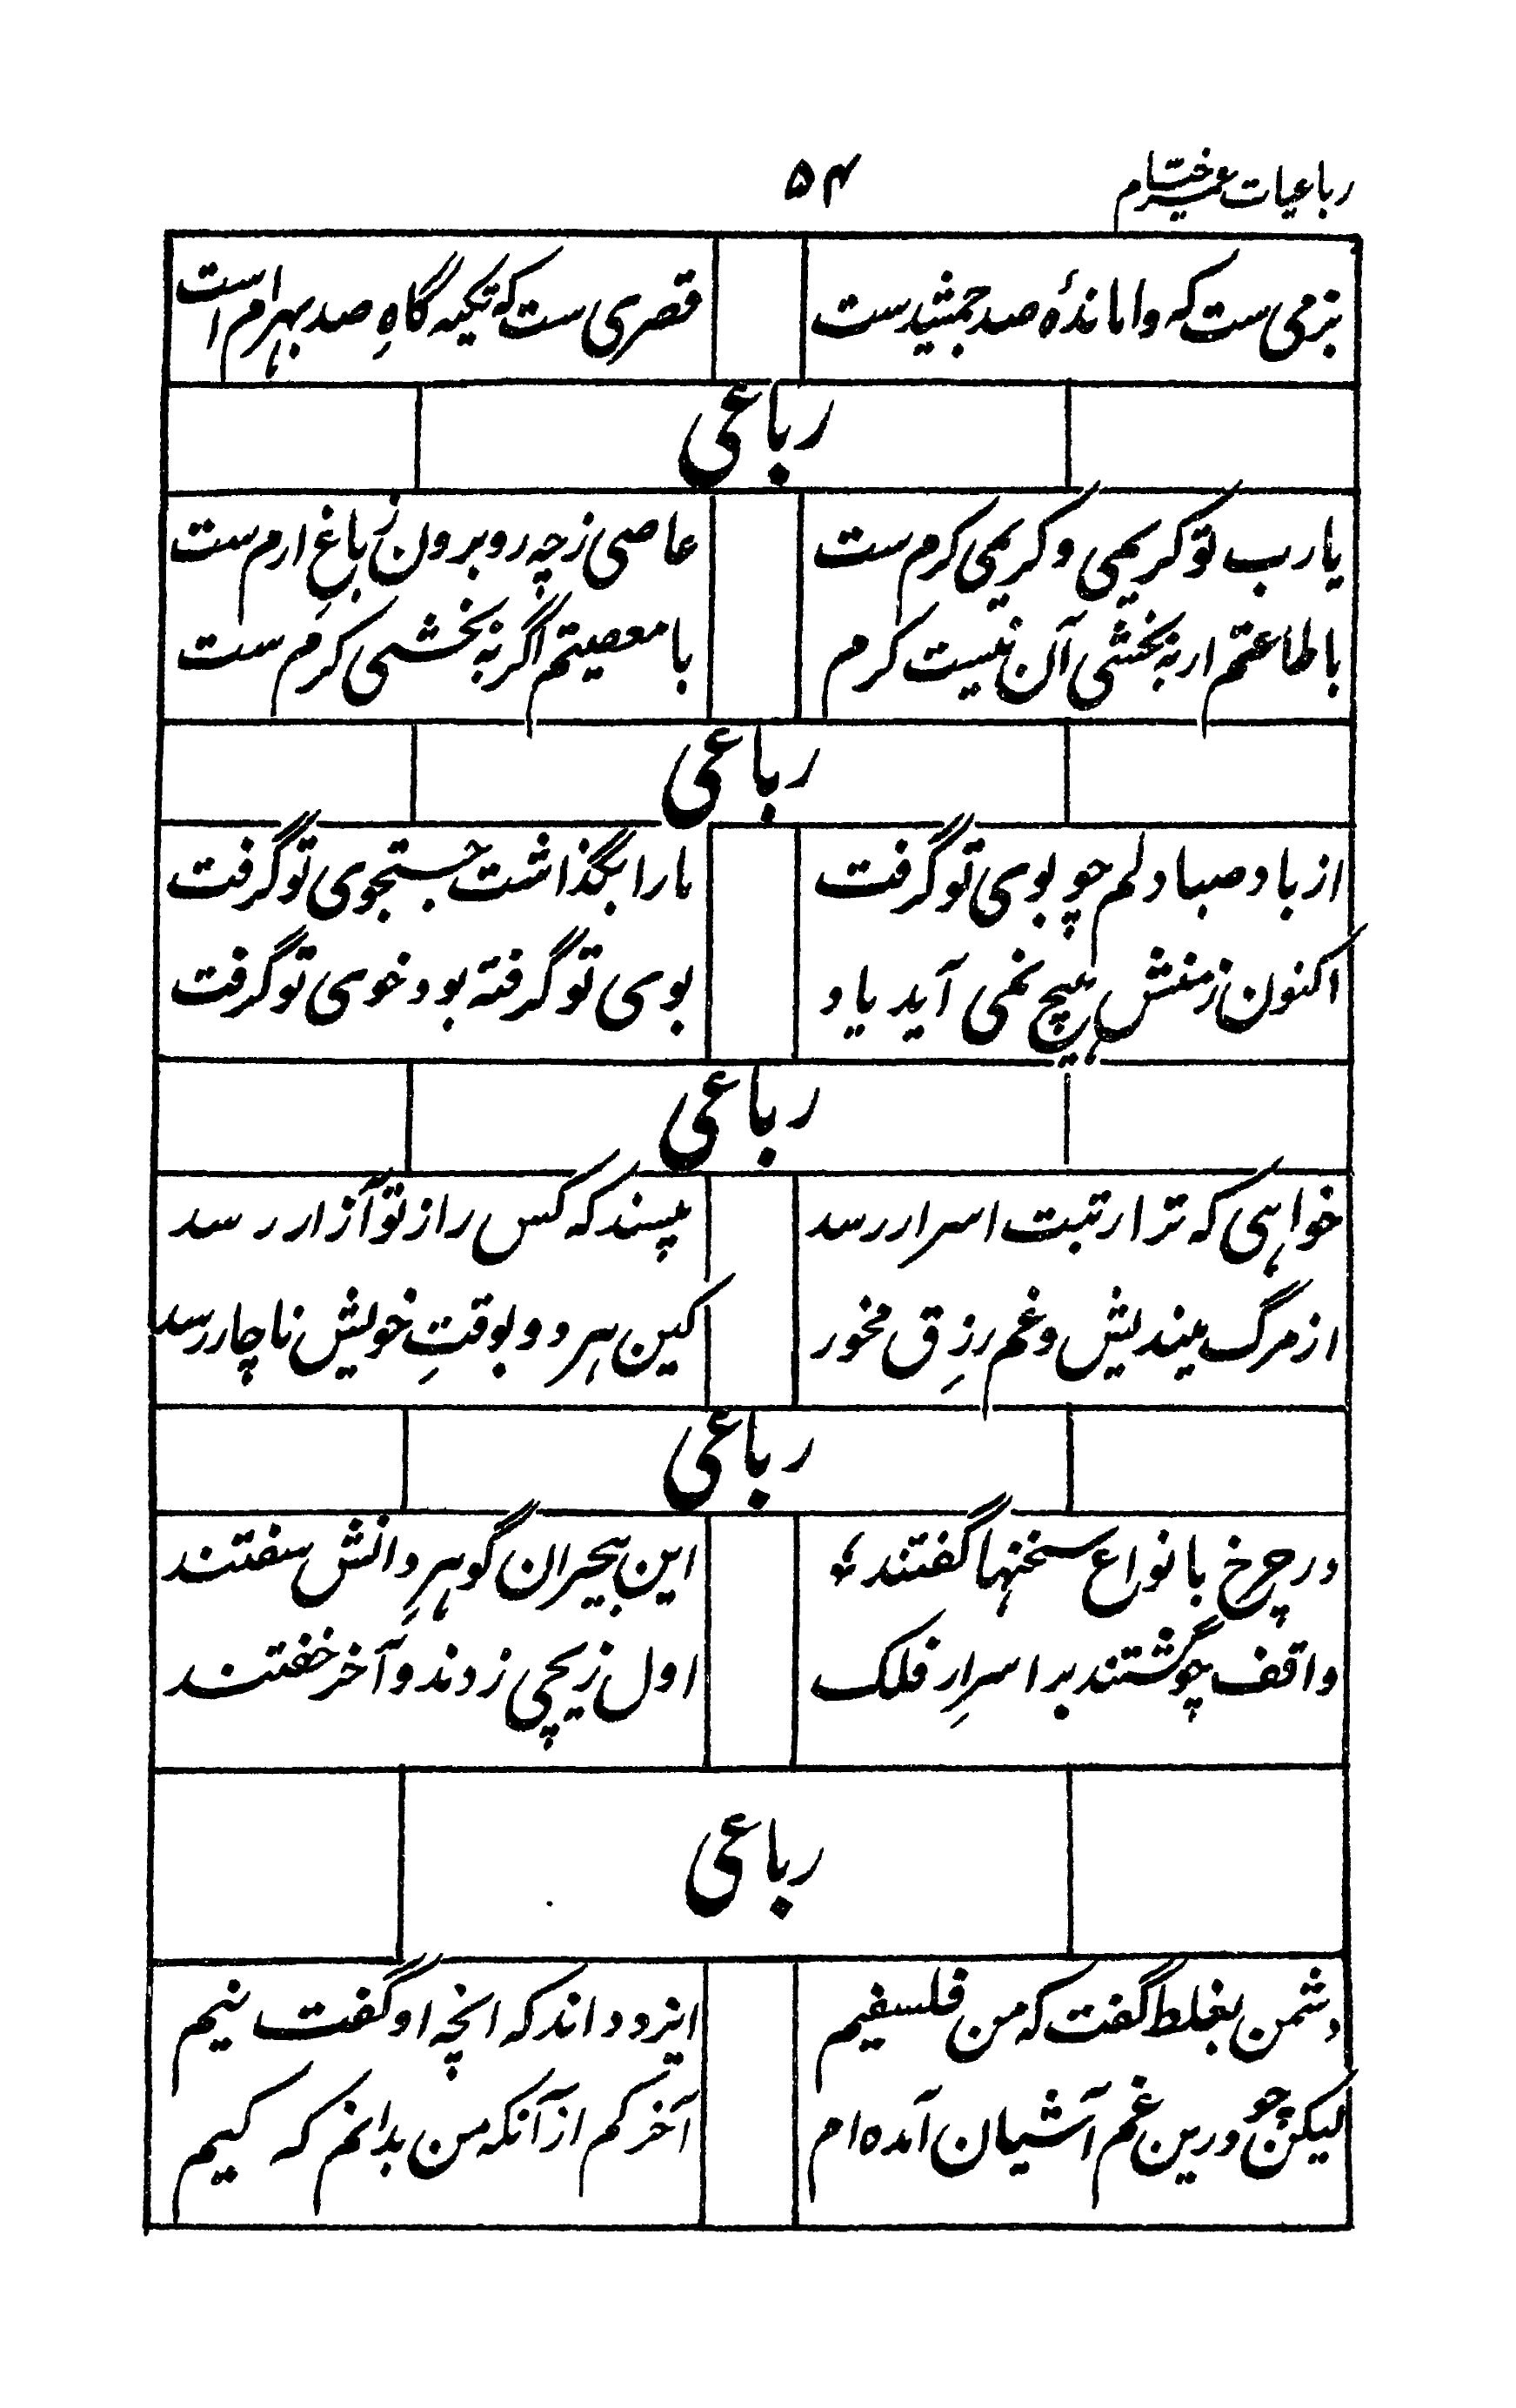 رباعیات عمر خیام ۵۴
بزمی ست که واماندهٔ صد جمشید ست قصری ست که تکیه گاهِ صد بهرام است
رباعی
یارب تو کریمی و کریمی کرم ست عاصی ز چه رو برون ز باغِ ارم ست
با طاعتم ار به بخشی آن نیست کرم با معصیتم اگر به بخشی کرم ست
رباعی
از باد صبا دلم چو بوی تو گرفت مارا بگذاشت جستجوی تو گرفت
اکنون ز منش هیچ نمی آید یاد بوی تو گرفته بود خوی تو گرفت
رباعی
خواهی که ترا رتبت اسرار رسد مپسند که کس را ز تو آزار رسد
از مرگ میندیش و غم رزِق مخور کین هر دو بوقتِ خویش ناچار رسد
رباعی
در چرخ بانواع سخنها گفتند، این بیخبران گوهرِ دانش سفتند
واقف چو گشتند بر اسرارِ فلک اول زیچی زدند و آخر خفتند
رباعی
دشمن بغلط گفت که من فلسفیم ایزد داند که انچه او گفت نیم
لیکن چو درین غم آشیان آمده ام آخر کم از آنکه من بدانم که کیم